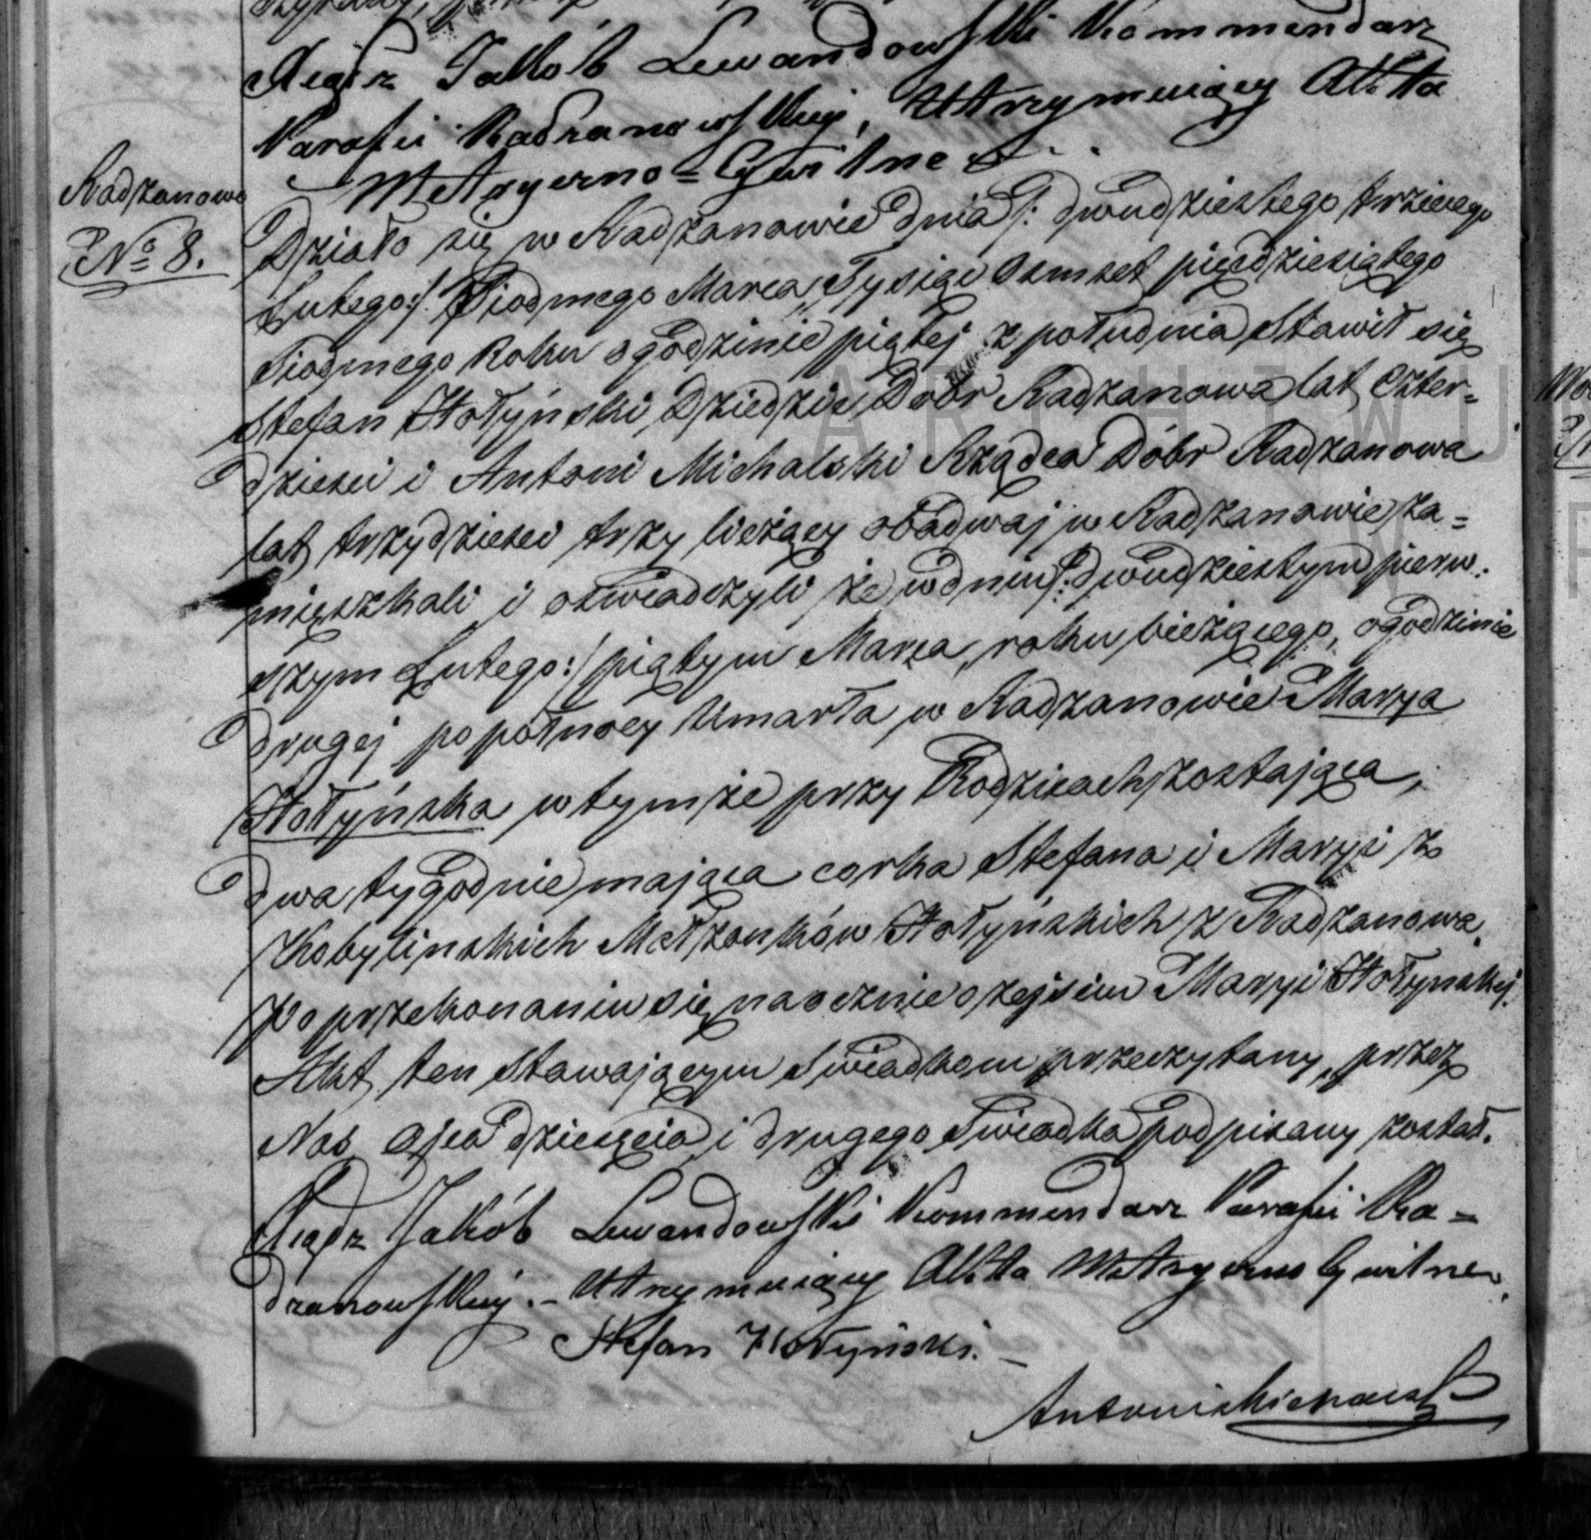 Xiądz Jakób Lewandowski Kommendarz
Parafii Radzanowskiej, Utrzymuiący Akta
Metryczno = Cywilne
Radzanowo
No 8.
Działo się w Radzanowie dnia /: dwudziestego trzeciego
Lutego :/ Siodmego Marca, Tysiąc Osmset piędziesiątego
Siodmego Roku o godzinie piątej z południa Stawił się
Stefan Hołyński, Dziedzic Dobr Radzanowa lat czter=
dzieści i Antoni Michalski Rządca Dóbr Radzanowa
lat trzydzieści trzy liczący obadwaj w Radzanowie za=
mięszkali i oświadczyli że w dniu /: dwudziestym pierw.
szym Lutego :/ piątym Marca, roku bieżącego, o godzinie
drugej po połnocy Umarła w Radzanowie Marya
Hołyńska w tymże przy Rodzicach zostająca,
dwa tygodnie mająca corka Stefana i Maryi z
Kobylinskich Małżonków Hołyńskich z Radzanowa.
Po przekonaniu się naocznie o zejściu Maryi Hołynskej.
Akt ten Stawającym Swiadkom przeczytany, przez
Nas Ojca dziecięcia i drugego Swiadka podpisany został.
Xiądz Jakób Lewandowski Kommendarz Parafii Ra=
dzanowskiej. - Utrzymuiący Akta Metryczno Cywilne.
Stefan Hołyński. -
Antoni Michalski
ARCHIWU